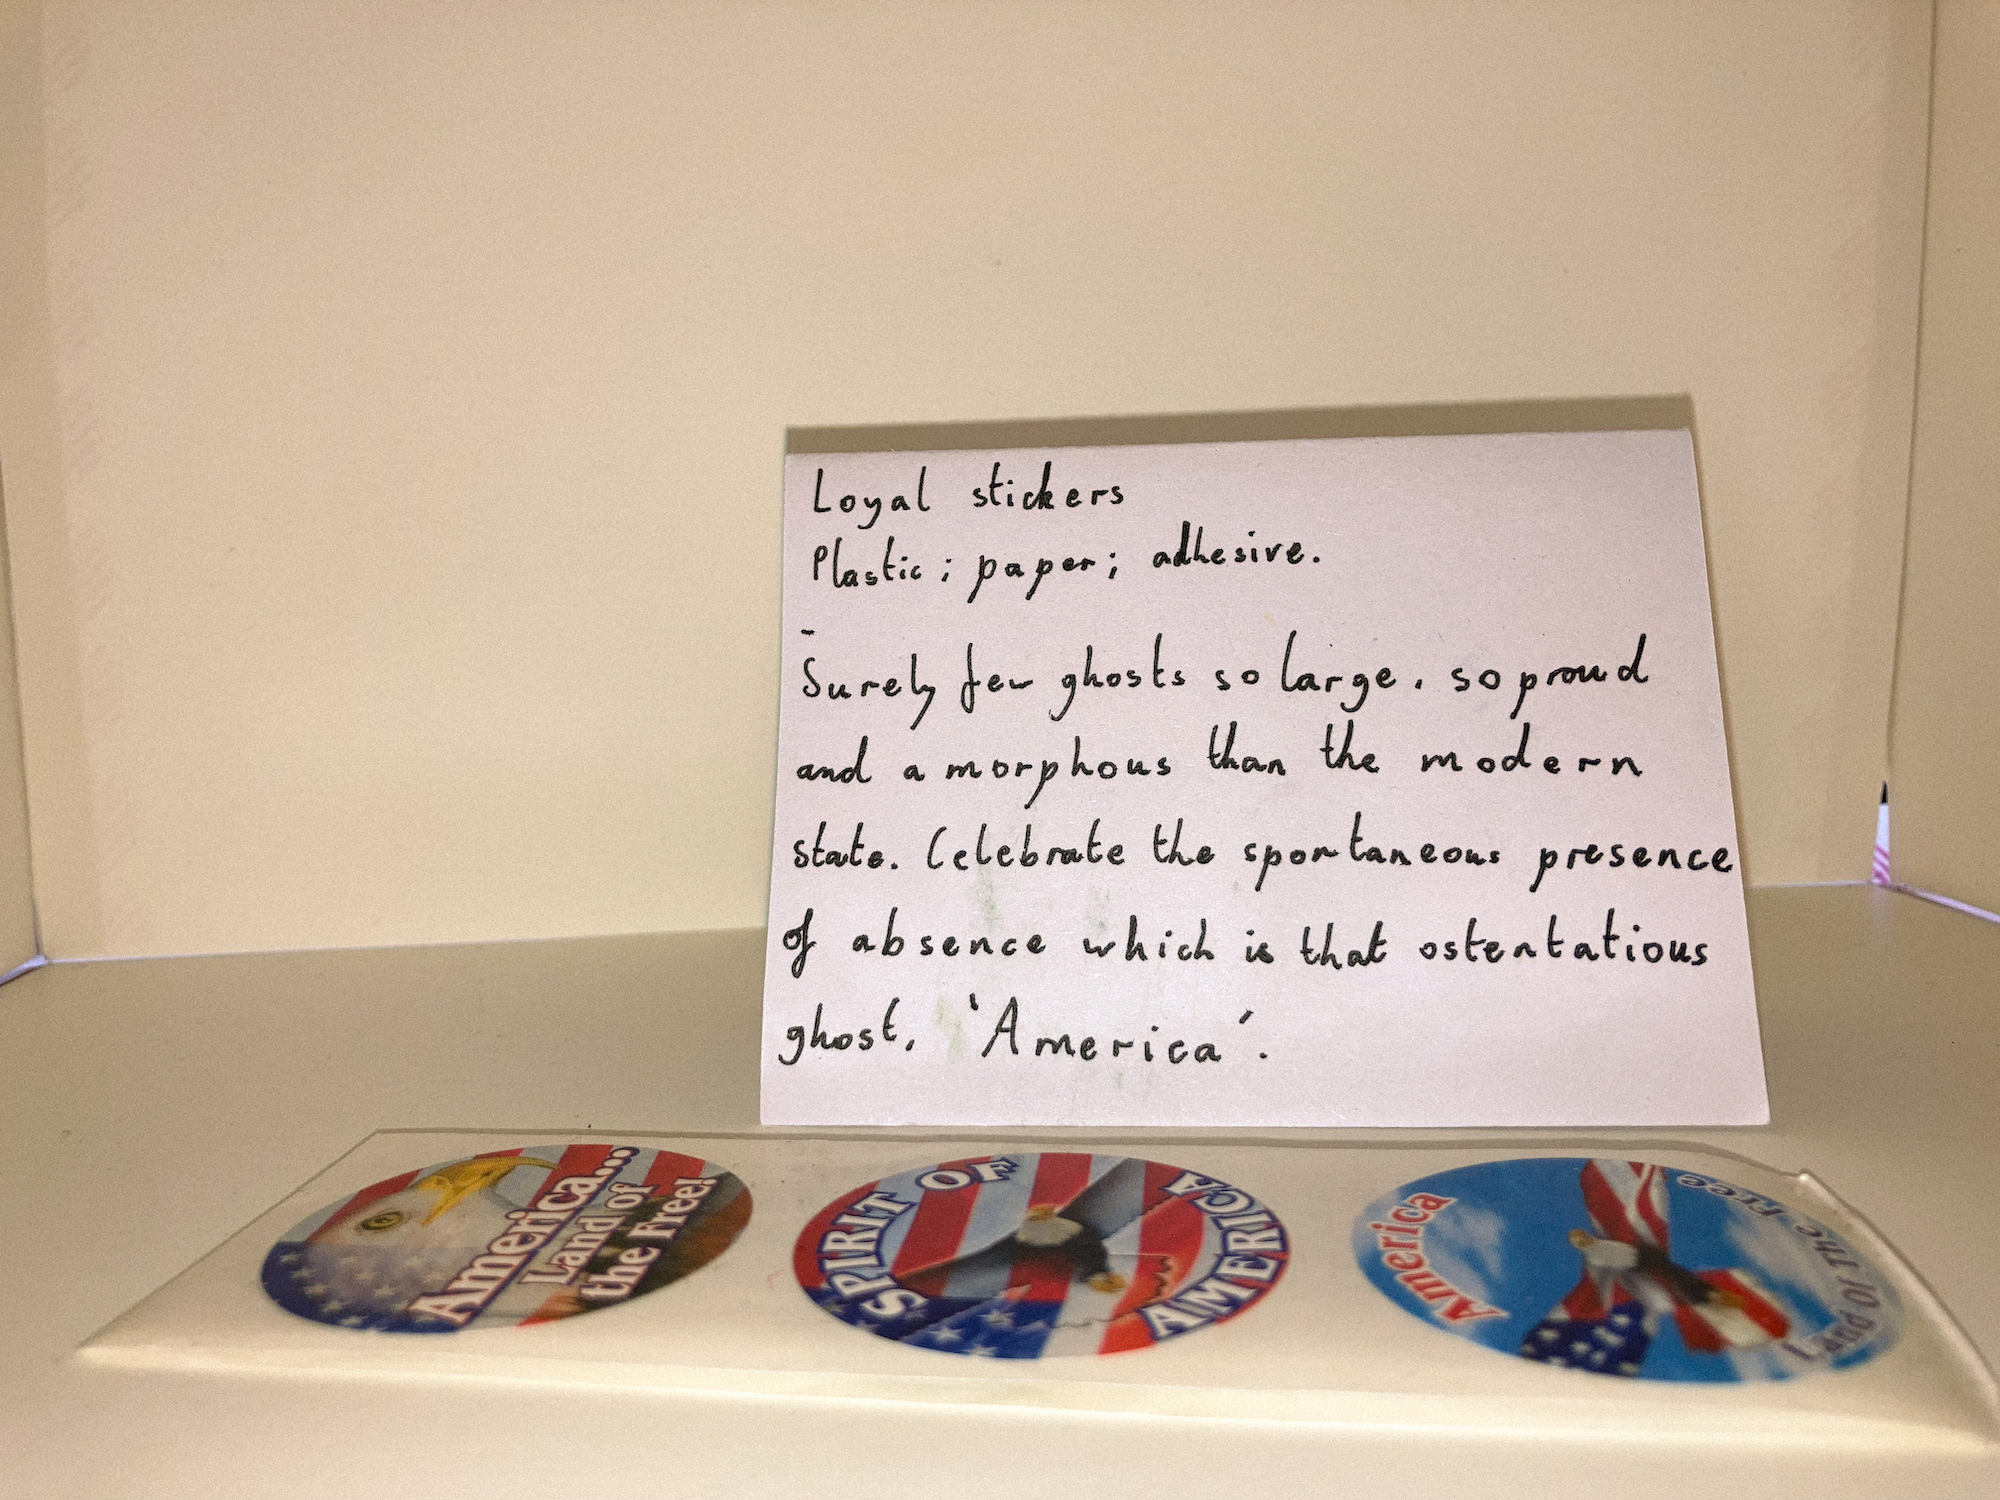 Loyal stickers
Plastic; paper; adhesive.
-
Surely few ghosts so large, so proud
and amorphous than the modern
state. Celebrate the spontaneous presence
of absence which is that ostentatious
ghost, 'America'.
America...
Land of
the Free!
SPIRIT OF
AMERICA
America
Land Of The Free